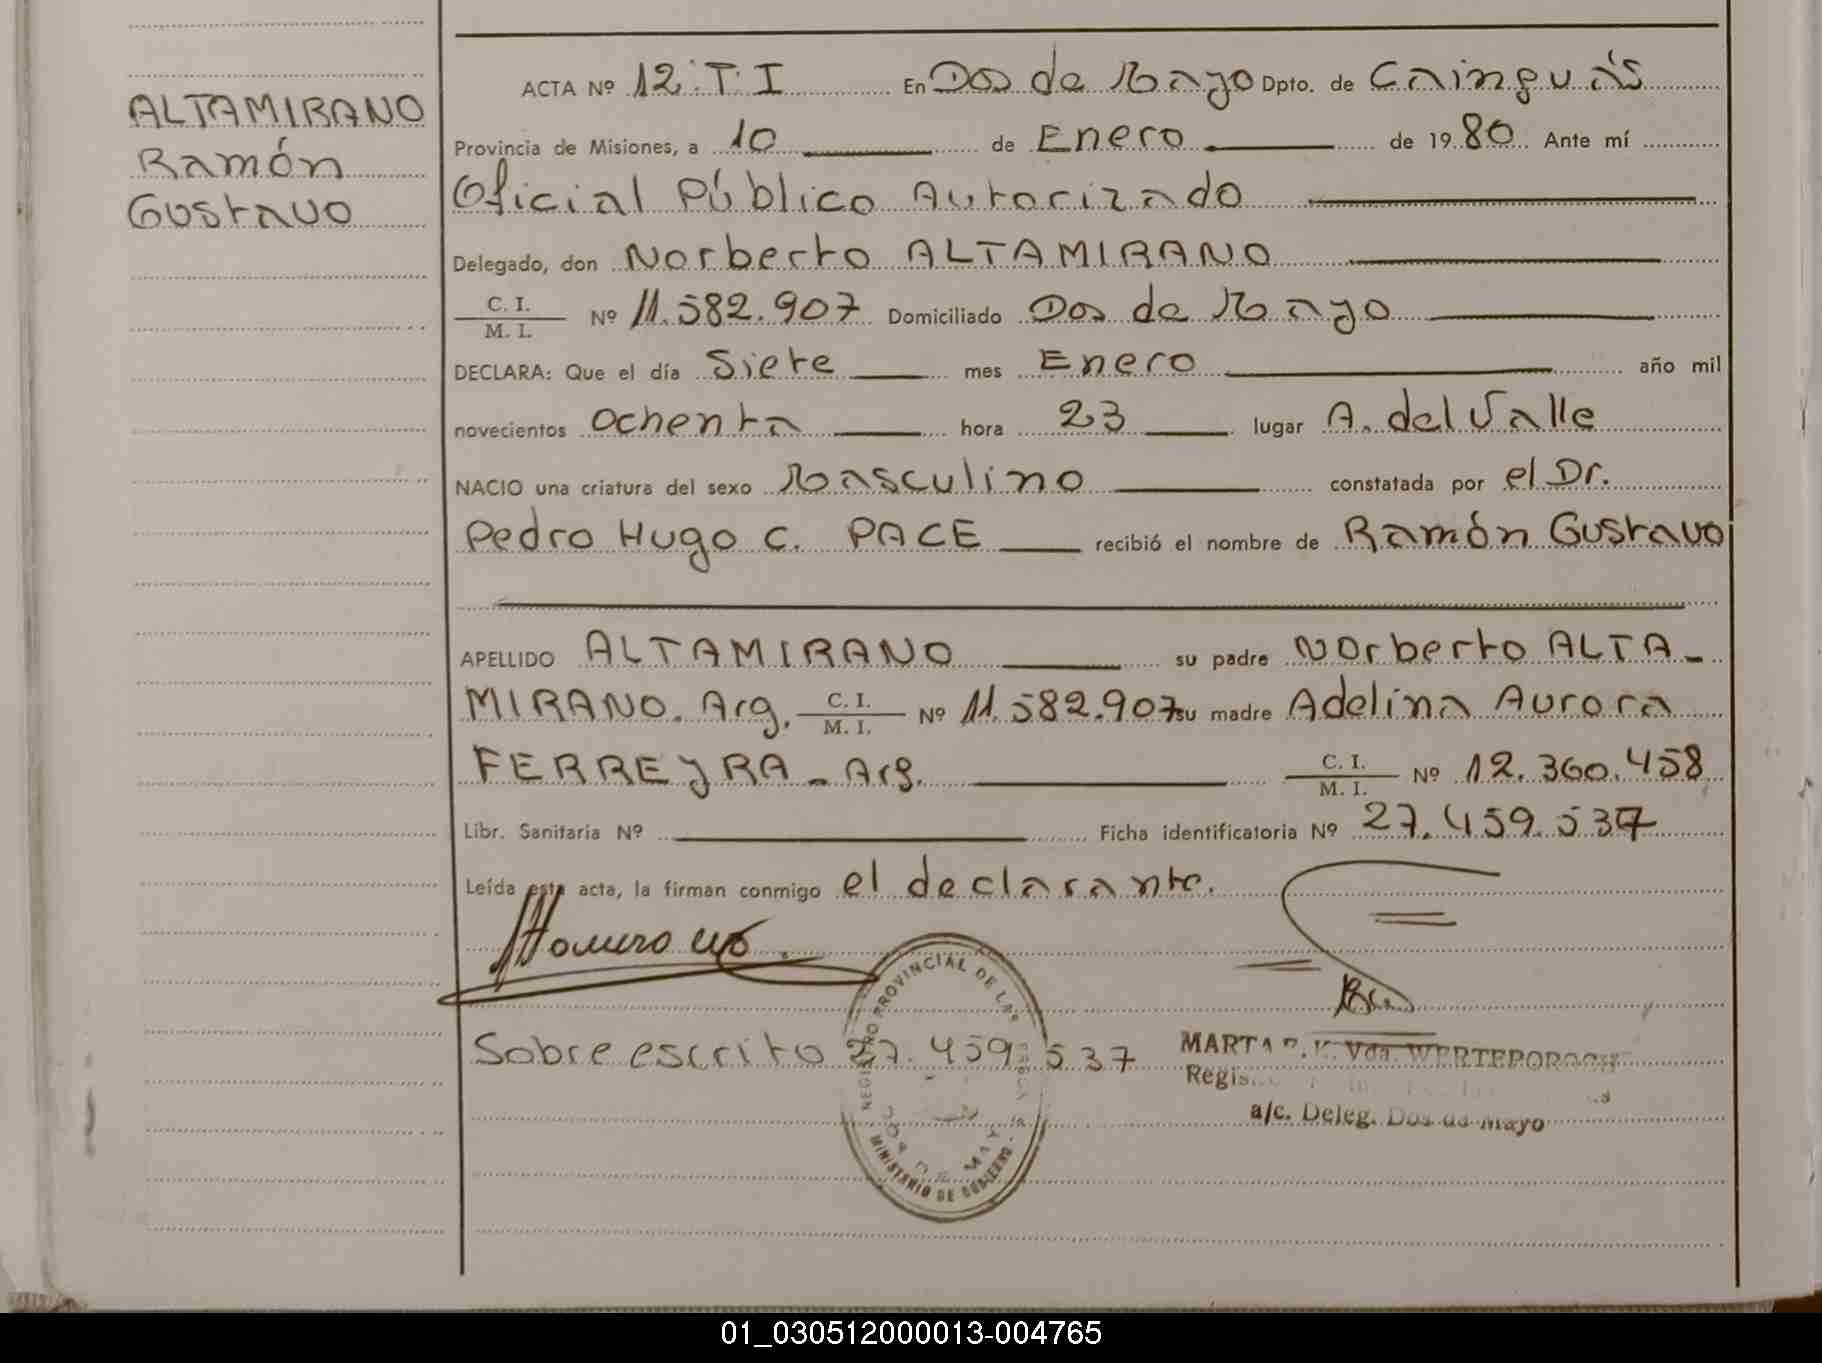 ALTAMIRANO
Ramón
Gustavo
ACTA Nº 12.T.I En Dos de Mayo Dpto. de Cainguás
Provincia de Misiones, a 10 de Enero de 1980. Ante mí
Oficial Público Autorizado
Delegado, don Norberto ALTAMIRANO
C. I.
M. I. Nº 11.582.907 Domiciliado Dos de Mayo
DECLARA: Que el día Siete mes Enero año mil
novecientos ochenta hora 23 lugar A. del Valle
NACIO una criatura del sexo Masculino constatada por el Dr.
Pedro Hugo C. PACE recibió el nombre de Ramón Gustavo
APELLIDO ALTAMIRANO su padre Norberto ALTA-
MIRANO. Arg. C. I. M. I. Nº 11.582.907 su madre Adelina Aurora
FERREYRA - Arg. C. I. M. I. Nº 12.360.458
Libr. Sanitaria Nº Ficha identificatoria Nº 27.459.537
Leída esta acta, la firman conmigo el declarante.
Sobre escrito 27.459.537
REGISTRO PROVINCIAL DE LAS
DOS DE MAYO
MINISTERIO DE GOBIERNO
MARTA Vda. WERTEPOROCH
Regis.
a/c. Deleg. Dos de Mayo
01_030512000013-004765